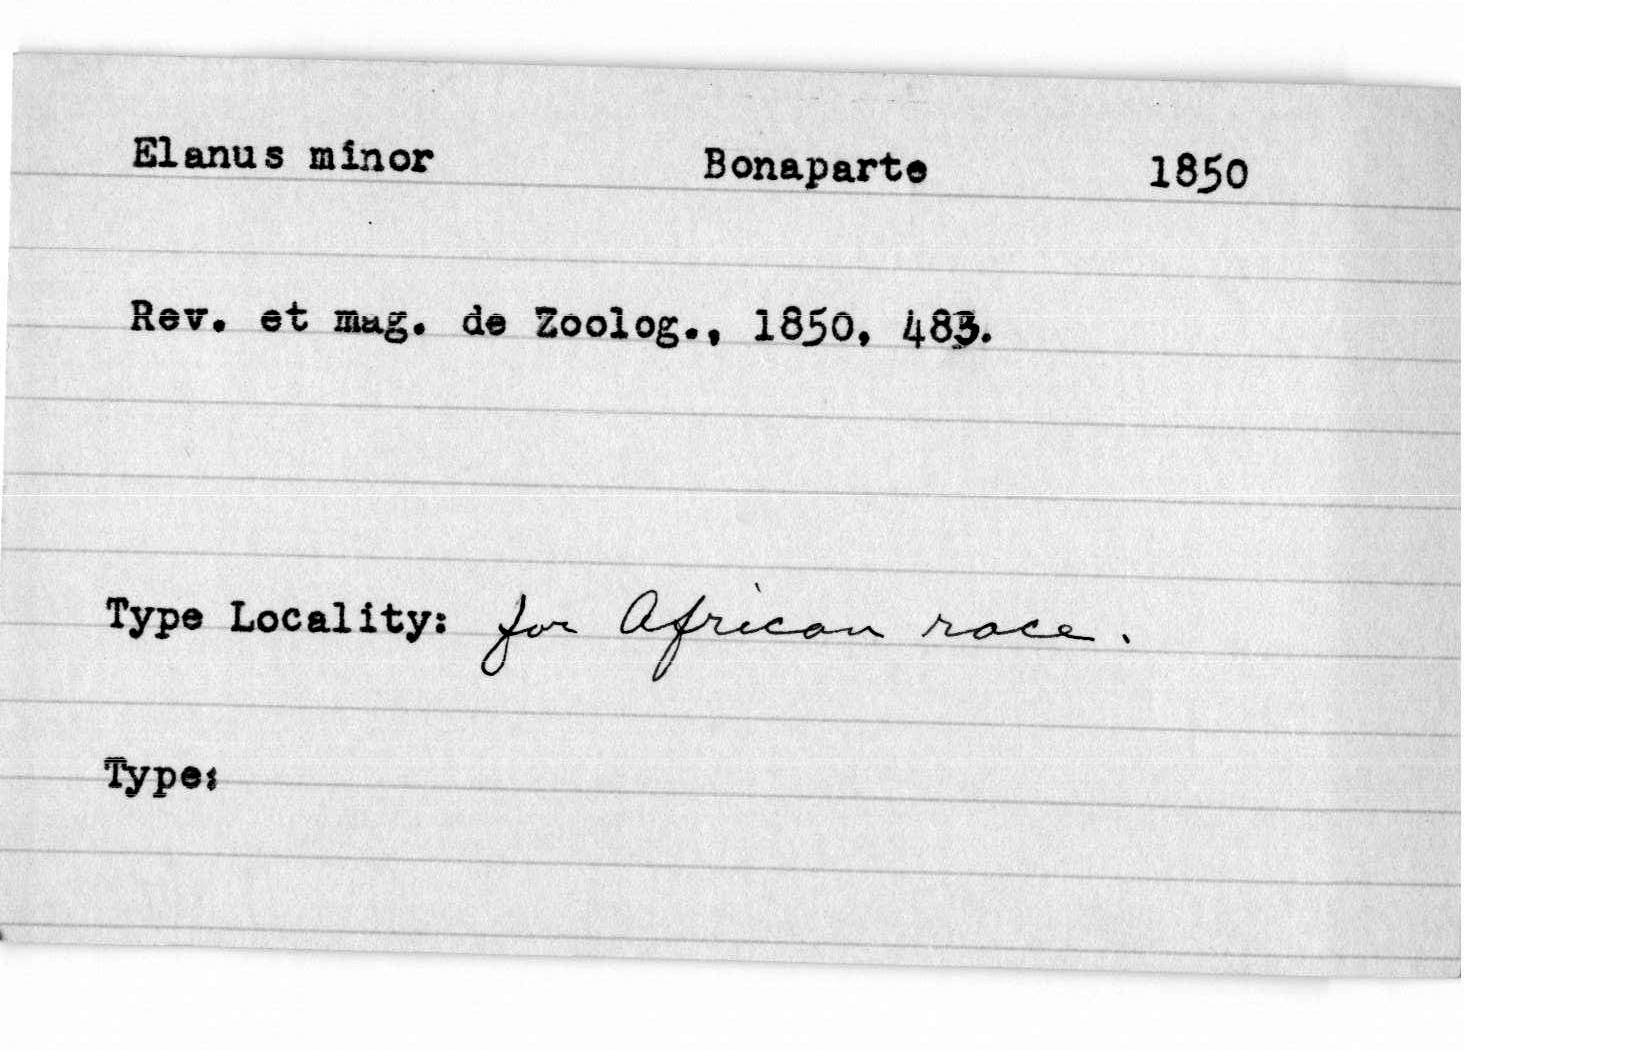 Elanus minor Bonaparte 1850
Rev. et mag. de Zoolog., 1850, 483.
Type Locality: for African race.
Type: